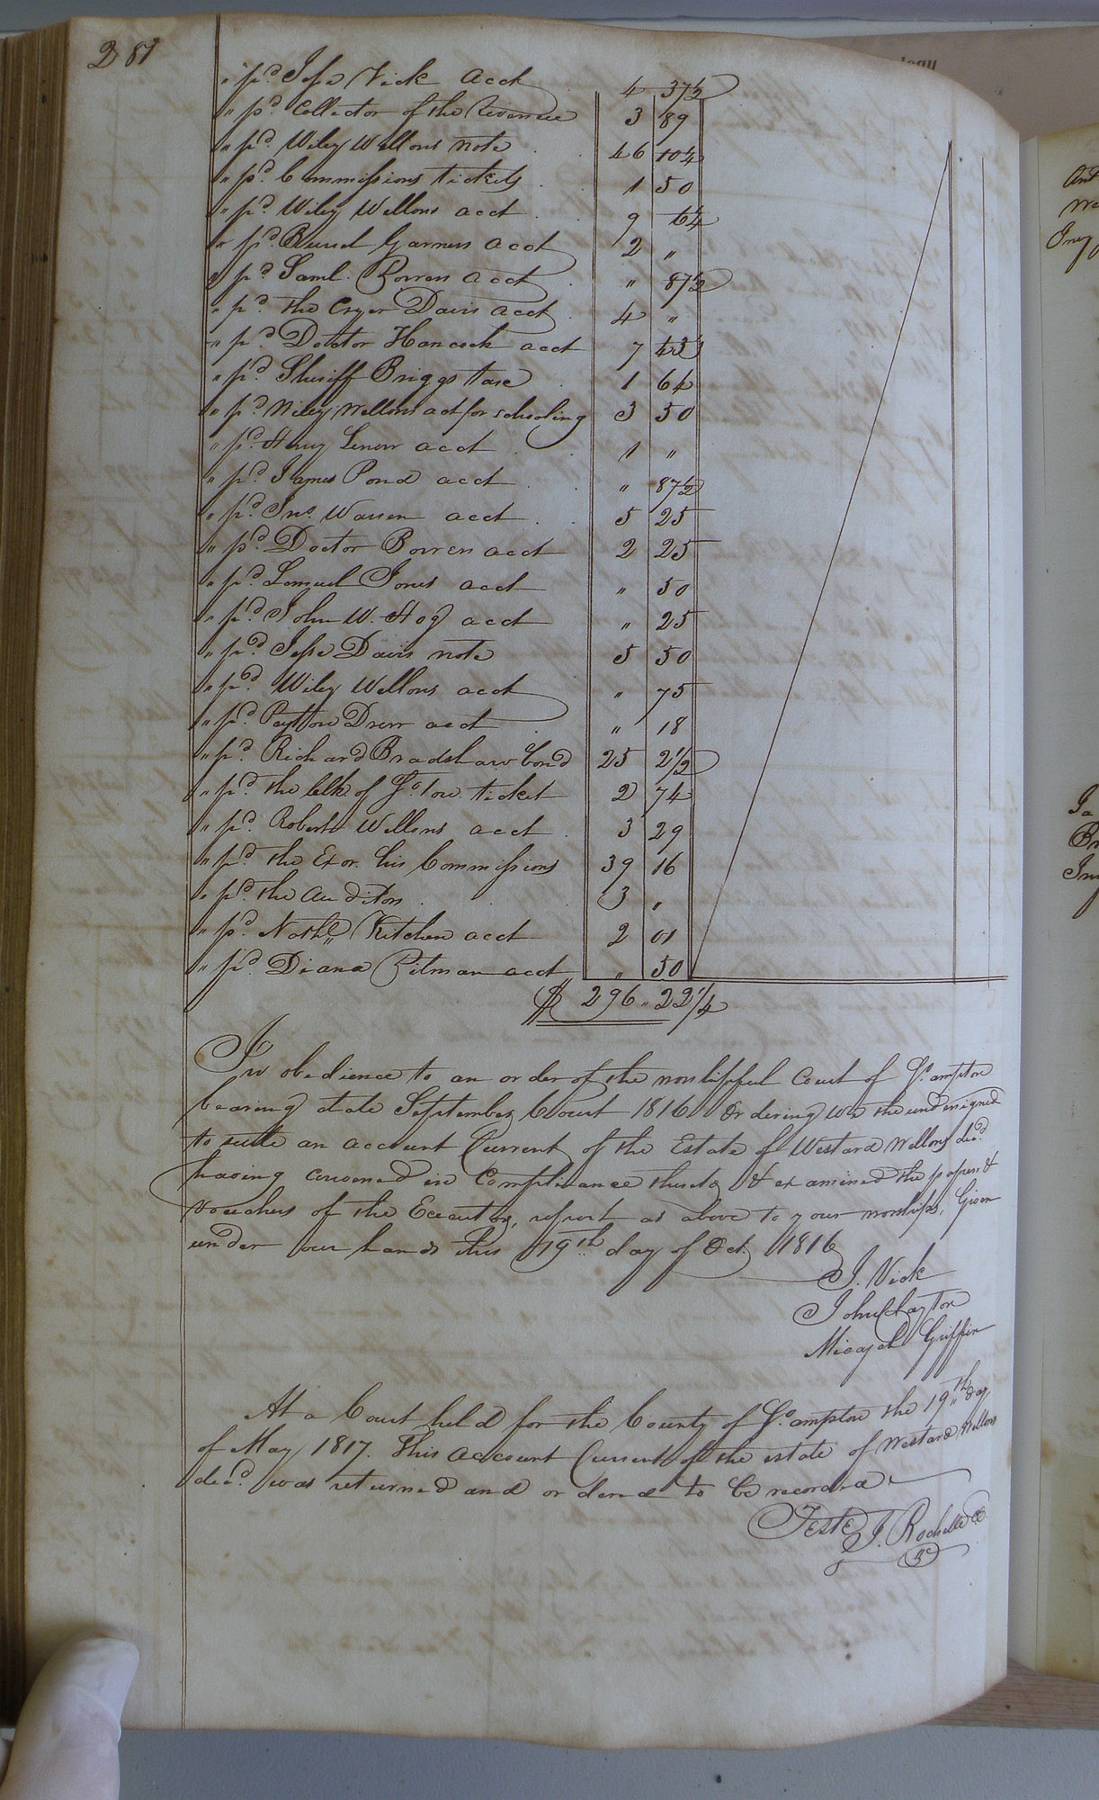 281
" pd. Jesse Vick acct 4 37½
" pd. Collector of the Revenue 3 89
" pd. Wiley Wellons note 46 10¼
" pd. Commissions tickets 1 50
" pd. Wiley Wellons acct 9 6¼
" pd. Burrel Garners acct 2 "
" pd. Saml. Bowers acct " 87½
" pd. the Cryer Davis acct 4 "
" pd. Doctor Hancock acct 7
" pd. Sheriff Briggs tax 1 64
" pd. Wiley Wellons act for schooling 3 50
" pd. Henry Lenow acct 1 "
" pd. James Pond acct " 87½
" pd. Jno. Warren acct 5 25
" pd. Doctor Bowers acct 2 25
" pd. Lemuel Jones acct " 50
" pd. John W. Hog acct " 25
" pd. Jesse Davis note 5 50
" pd. Wiley Wellons acct " 75
" pd. Paytton Drew acct " 18
" pd. Richard Bradshaw bond 25 2½
" pd. the Clk of So. ton ticket 2 74
" pd. Roberts Wellons acct 3 29
" pd. the Exor. his Commissions 39 16
" pd. the Auditors 3 "
" pd. Nathl. Kitchen acct 2 01
" pd. Diana Pitman acct " 50
$ 296 " 22 1/4
In obedience to an order of the worshipful Court of So.ampton
bearing date September Court 1816 Ordering us the undersigned
to settle an account Current of the Estate of Westard Wellons decd.
having convened in Compliance thereto & examined the papers &
vouchers of the Executor, report as above to your worships, Given
under our hands this 19th day of Oct. 1816
J. Vick
John Clayton
Micajah Griffin
At a Court held for the County of So.ampton the 19th day
of May 1817. This account Current of the estate of Westard Wellons
decd. was returned and ordered to be recorded
Teste J. Rochelle